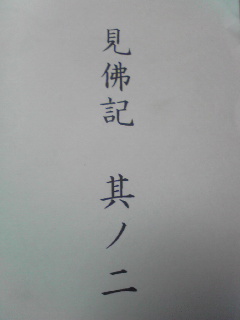 見佛記　其ノ二